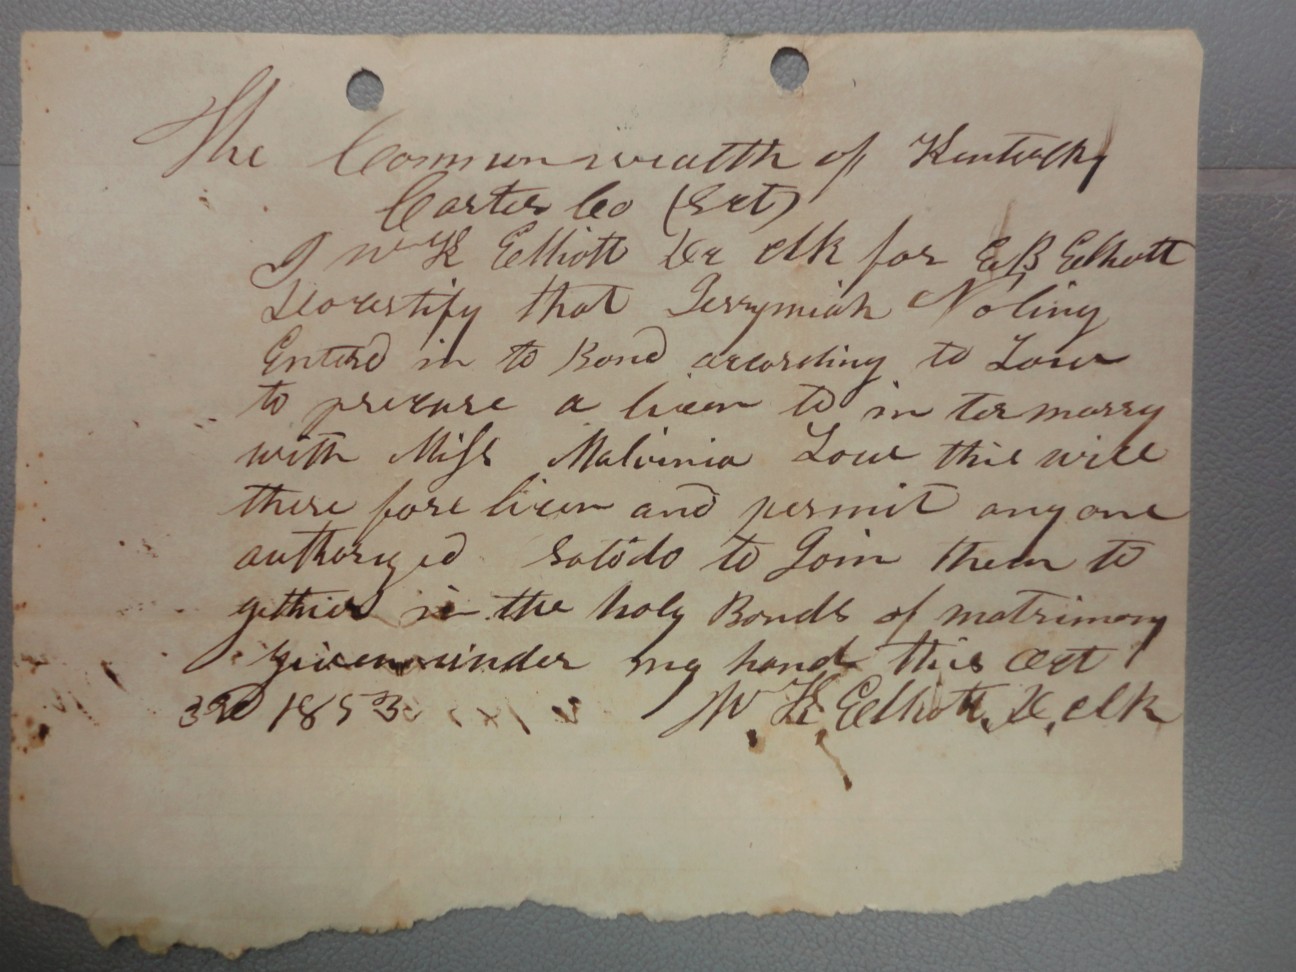 The Commonwealth of Kentucky
Carter Co (Sct)
I W K Elliott De clk for E B Elliott
Docertify that Jerrymiah Noling
Enterd in to Bond according to Low
to precure a licen to in ter marry
with Miss Malvinia Low this will
there fore licen and permit any one
authorized sotodo to Join them to
gether in the holy Bonds of matrimony
given under my hand this Oct
3rd 1853 W K Elliott De clk